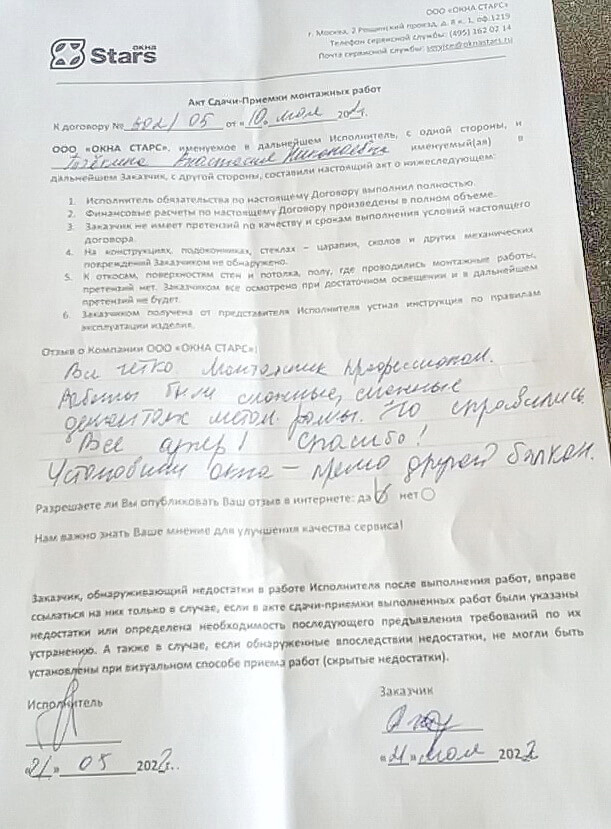 ООО «ОКНА СТАРС»
г. Москва, 2 Рощинский проезд, д. 8 к. 1, оф.1219
Телефон сервисной службы: (495) 162 02 14
Почта сервисной службы: service@oknastars.ru
ОКНА
Stars
Акт Сдачи-Приемки монтажных работ
К договору № 502/05 от «10» мая 202 г.
ООО «ОКНА СТАРС», именуемое в дальнейшем Исполнитель, с одной стороны, и
Анастасия Николаевна именуемый(ая) в
дальнейшем Заказчик, с другой стороны, составили настоящий акт о нижеследующем:
1. Исполнитель обязательства по настоящему Договору выполнил полностью.
2. Финансовые расчеты по настоящему Договору произведены в полном объеме.
3. Заказчик не имеет претензий по качеству и срокам выполнения условий настоящего
договора.
4. На конструкциях, подоконниках, стеклах – царапин, сколов и других механических
повреждений Заказчиком не обнаружено.
5. К откосам, поверхностям стен и потолка, полу, где проводились монтажные работы,
претензий нет. Заказчиком все осмотрено при достаточном освещении и в дальнейшем
претензий не будет.
6. Заказчиком получена от представителя Исполнителя устная инструкция по правилам
эксплуатации изделия.
Отзыв о Компании ООО «ОКНА СТАРС»:
Все чётко. Монтажник профессионал.
Работы были сложные, сложные
демонтаж метал. рамы. Но справились.
Все супер! Спасибо!
Установили окна – прямо другой балкон.
Разрешаете ли Вы опубликовать Ваш отзыв в интернете: да нет
Нам важно знать Ваше мнение для улучшения качества сервиса!
Заказчик, обнаруживающий недостатки в работе Исполнителя после выполнения работ, вправе
ссылаться на них только в случае, если в акте сдачи-приемки выполненных работ были указаны
недостатки или определена необходимость последующего предъявления требований по их
устранению. А также в случае, если обнаруженные впоследствии недостатки, не могли быть
установлены при визуальном способе приема работ (скрытые недостатки).
Исполнитель
Заказчик
«21» 05 2022г.
«21» мая 2022